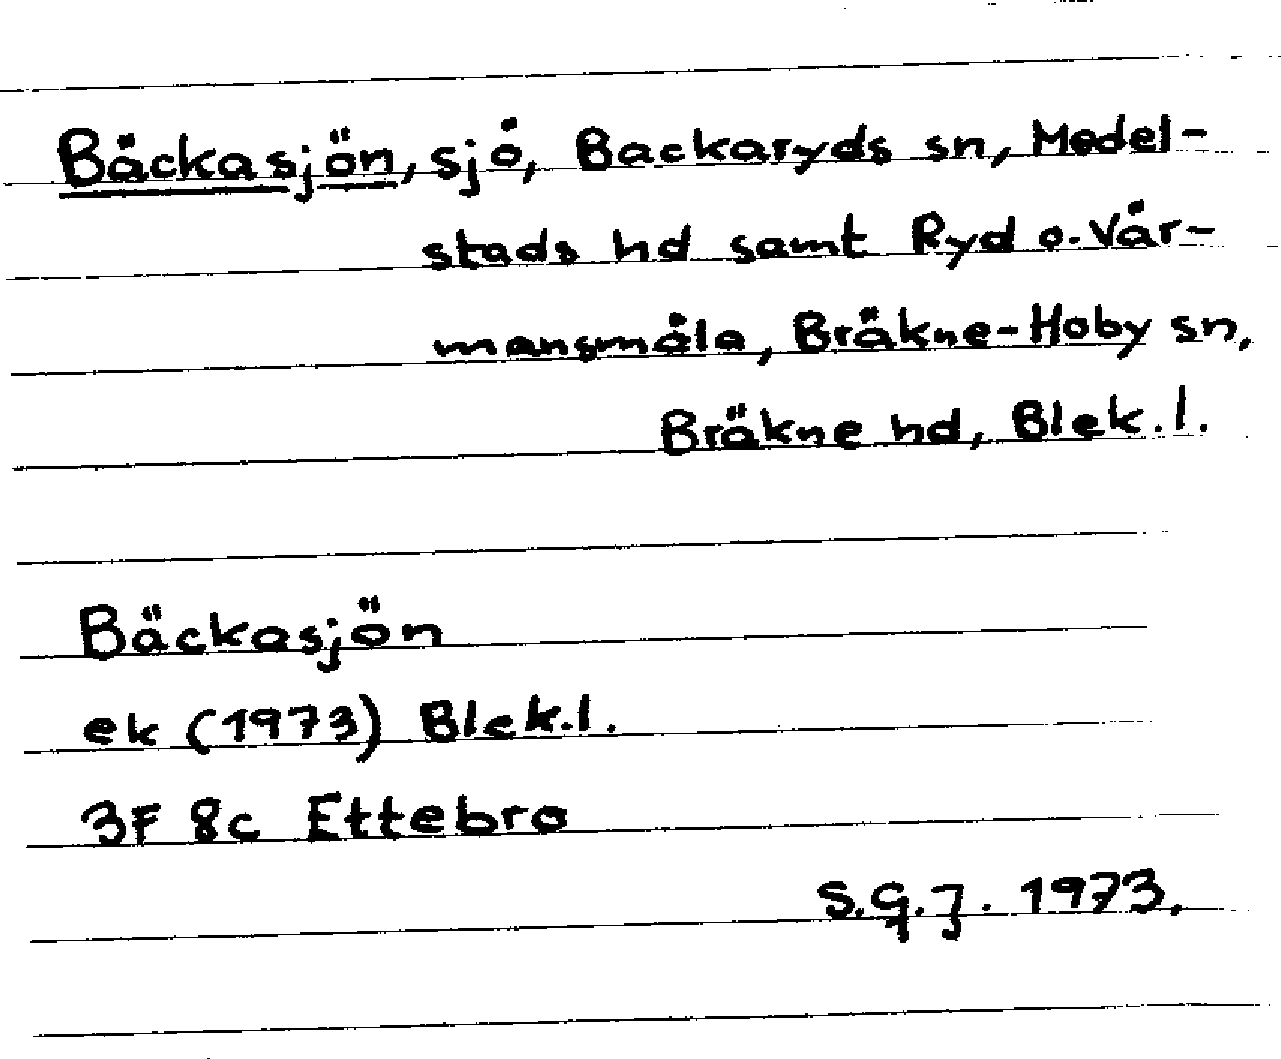 Bäckasjön, sjö, Backaryds sn, Medel-
stads hd samt Ryd o. Vår-
mansmåla, Bräkne-Hoby sn,
Bräkne hd, Blek.l.
Bäckasjön
ek (1973) Blek.l.
3F 8c Ettebro
S.G.J. 1973.